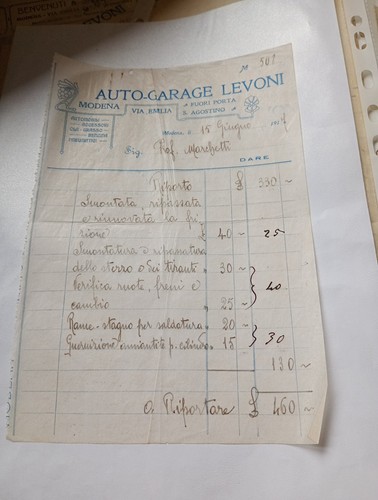 BENVENUTI &
N. 501
AUTO-GARAGE LEVONI
MODENA VIA EMILIA FUORI PORTA S. AGOSTINO
AUTOMOBILI
ACCESSORI
OLI - GRASSI
BENZINA
Modena, li 15 Giugno 19
Sig. Prof. Marchetti
DARE
Riporto £ 330 ~
Smontata, ripassata
e rinnovata la fri
zione £ 40 ~ 25
Smontatura e ripassatura
dello sterzo e dei tiranti " 30 ~
Verifica ruote, freni e 40
cambio 25 ~
Rame - stagno per saldatura " 20 ~
Guarnizione amiantite p. cilindro " 15 30
130 ~
a Riportare £ 460 ~